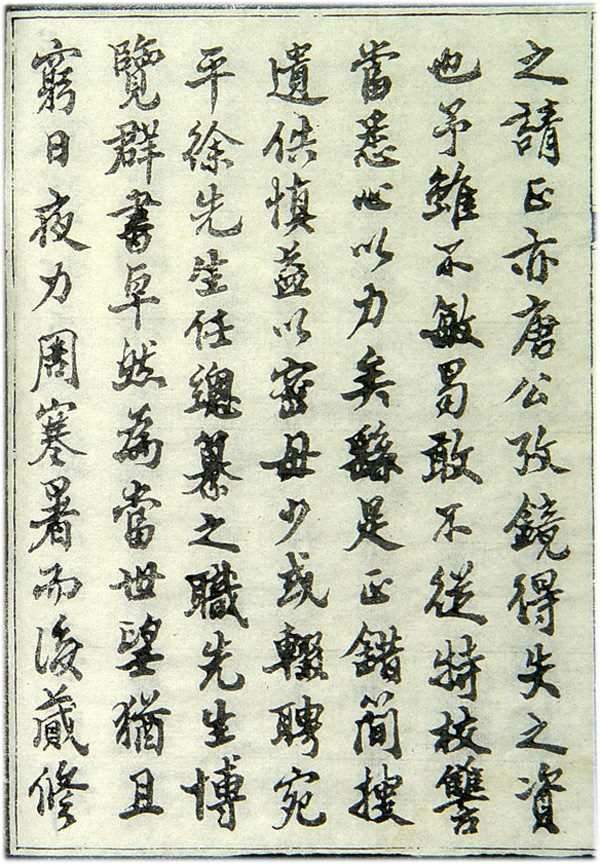 之請正亦唐公攷鏡得失之資
也予雖不敏曷敢不從特校讐
當悉心以力矣繇是正錯簡搜
遺佚慎益以密毋少或輟聘宛
平徐先生任總纂之職先生博
覽群書卓然為當世望猶且
窮日夜力周寒暑而後蕆修